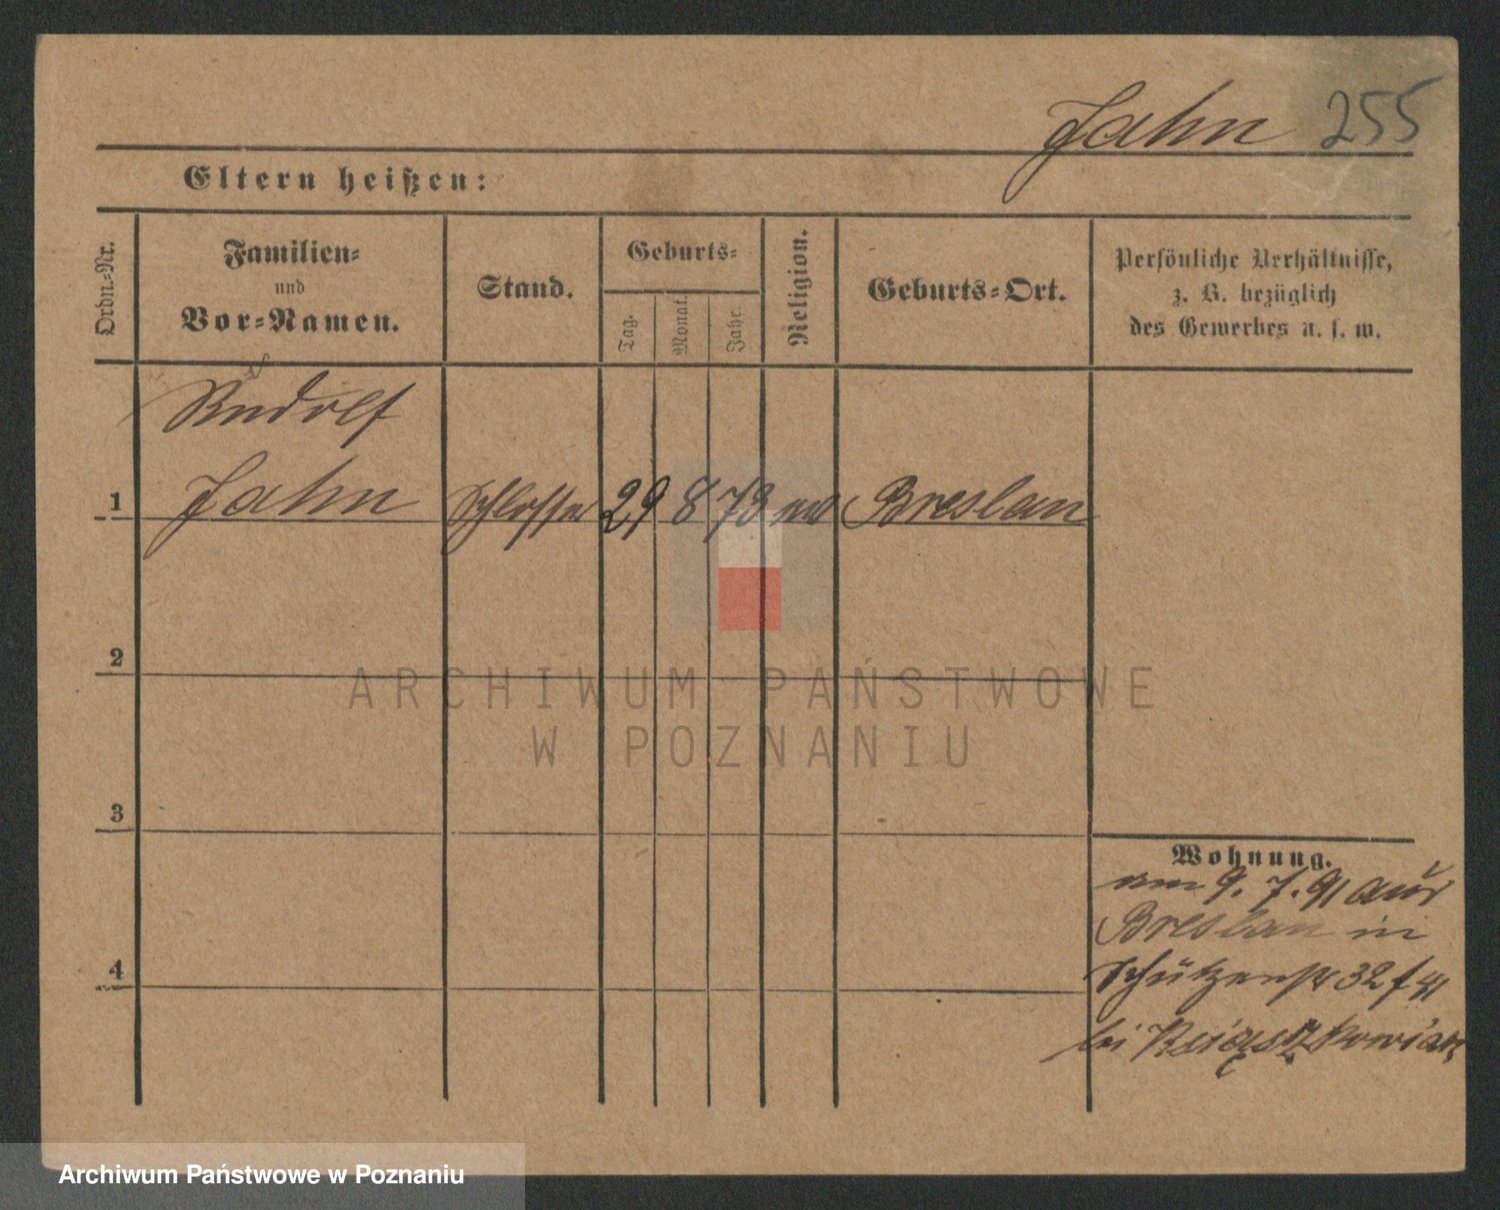 Jahn 255
Eltern heißen:
Ordn.-Nr.
Familien-
und
Vor-Namen.
Stand.
Geburts-
Tag.
Monat.
Jahr.
Religion.
Geburts-Ort.
Persönliche Verhältnisse,
z. B. bezüglich
des Gewerbes u. s. w.
Rudolf
1 Jahn Schlosser 29 8 73 Breslau
2
ARCHIWUM PAŃSTWOWE
W POZNANIU
3
Wohnung.
am 9. 7. 91 aus
Breslau in
4
Schützenstr 32
bei
Archiwum Państwowe w Poznaniu